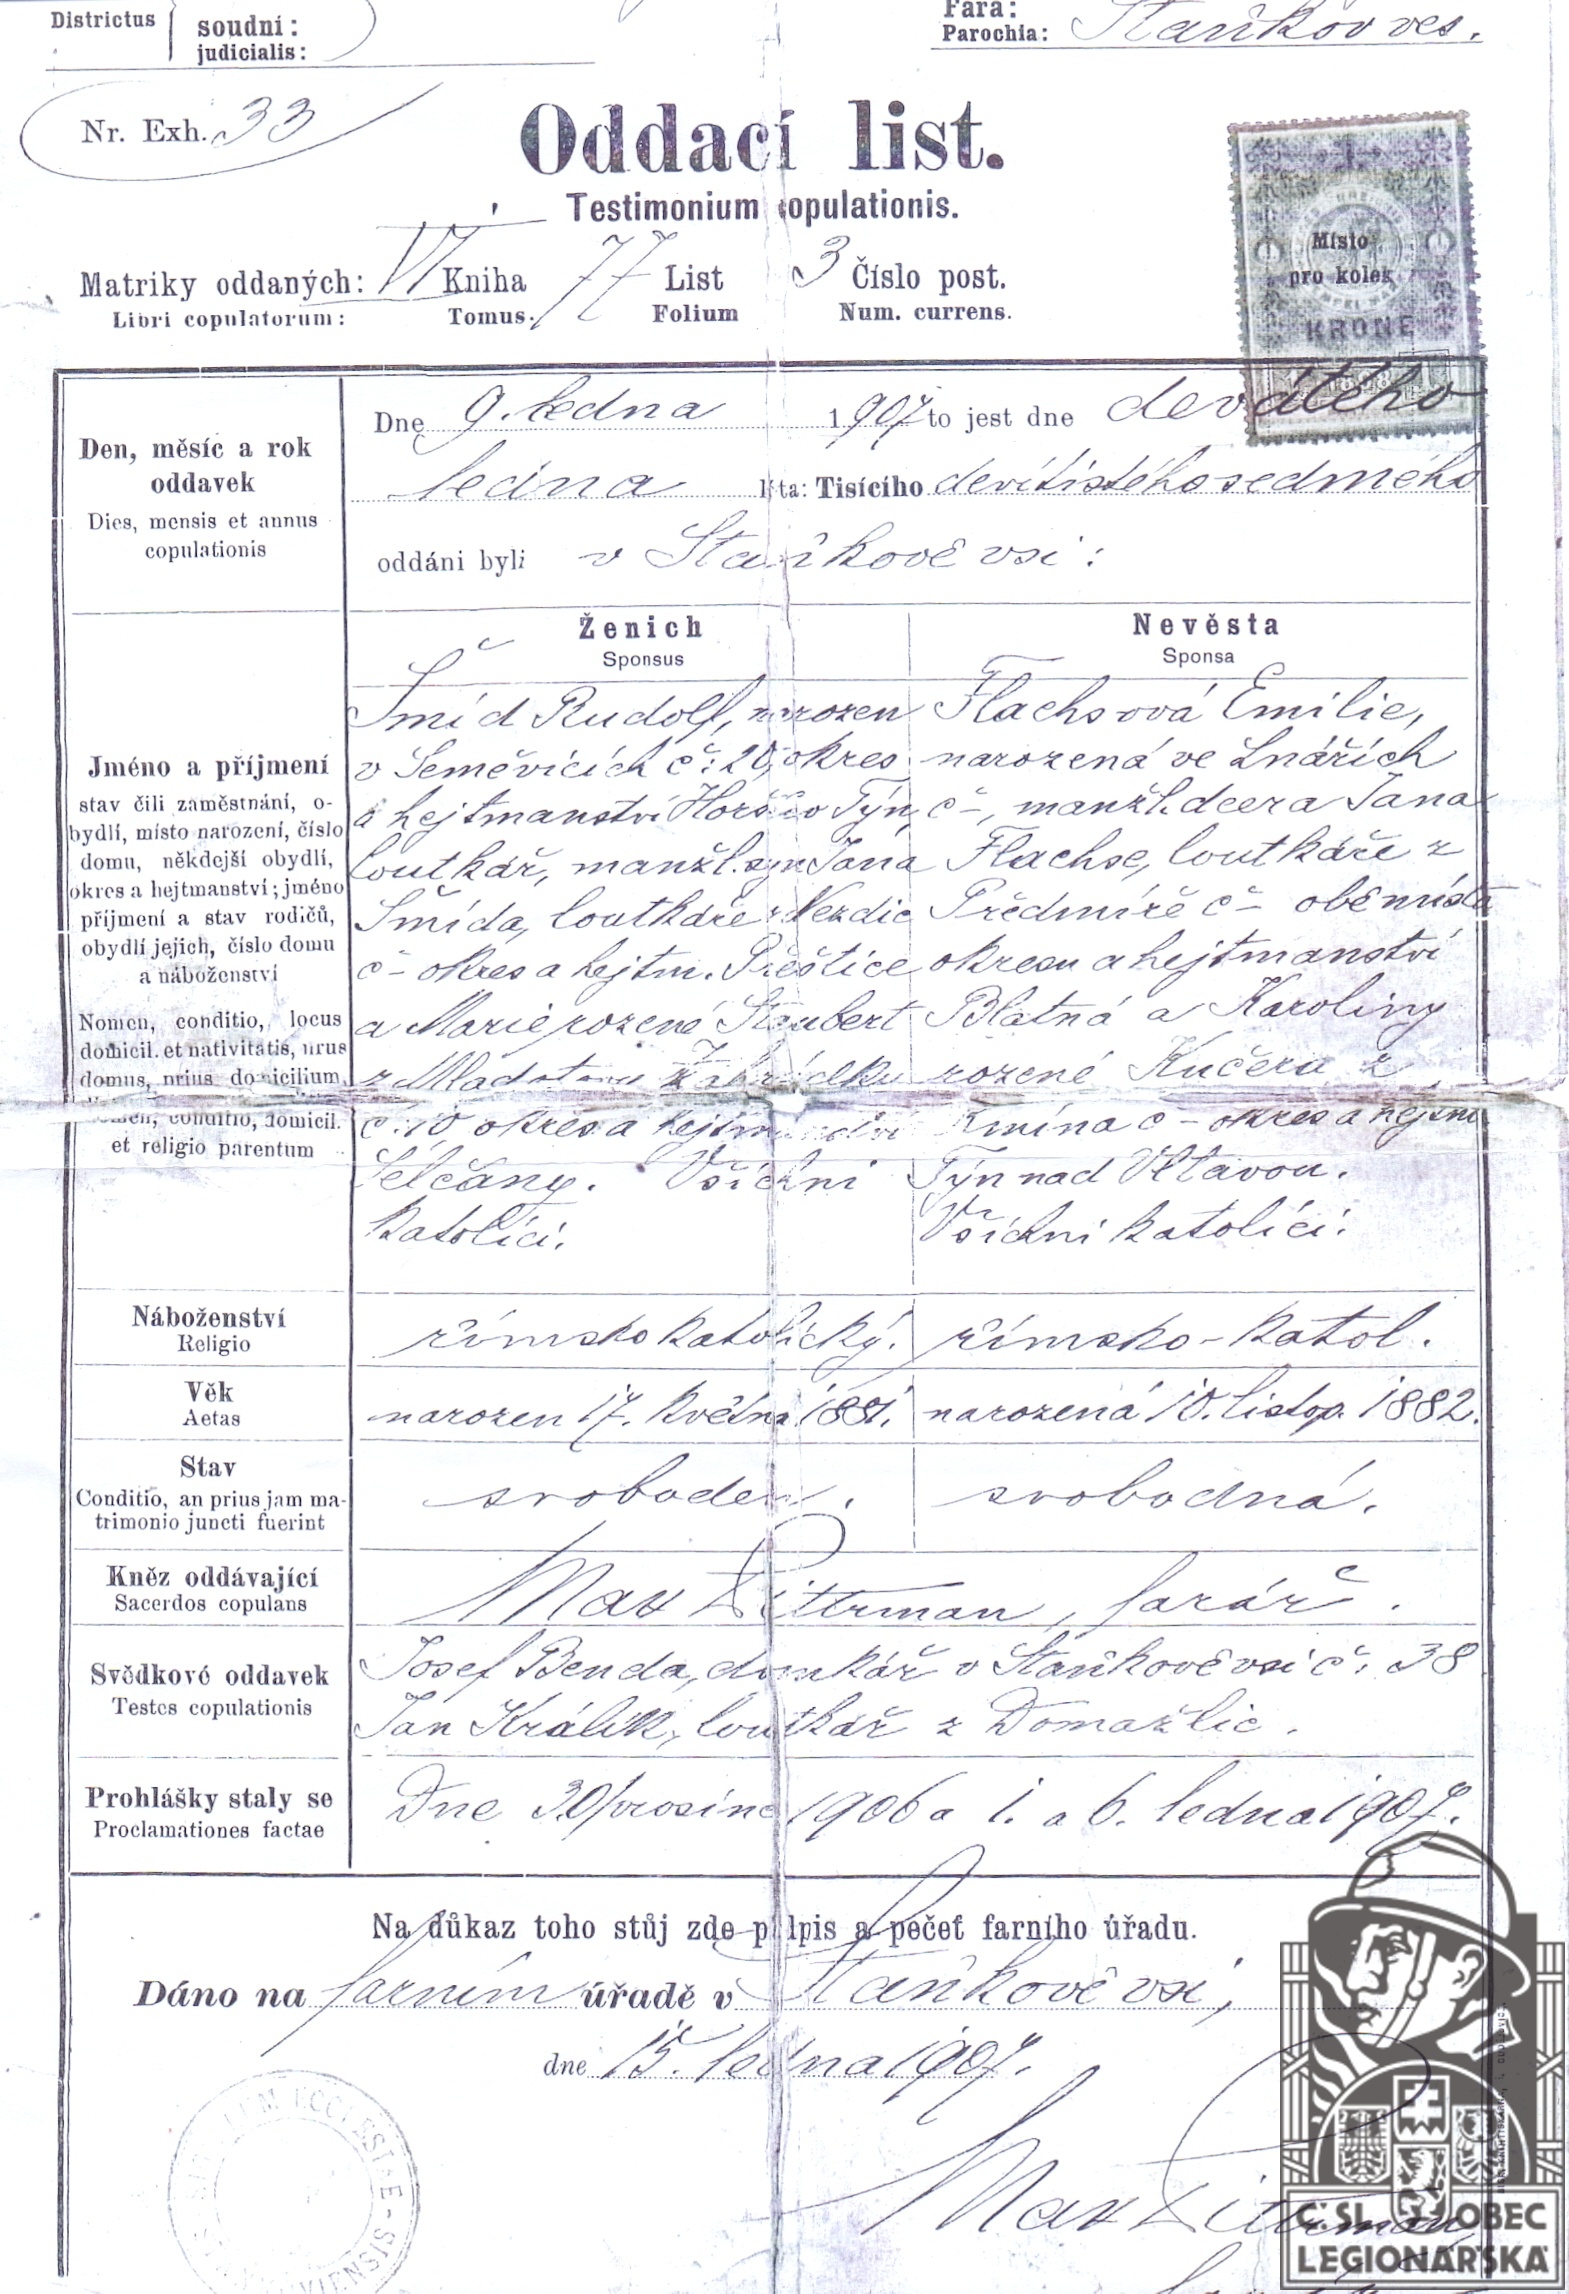 Districtus soudní: judicialis:
Fara: Parochia: Staňkov ves.
Nr. Exh. 33
Oddací list.
Testimonium copulationis.
Matriky oddaných: VI Kniha 77 List 3 Číslo post.
Libri copulatorum: Tomus. Folium Num. currens.
Místo
pro kolek
KRONE
1898
Den, měsíc a rok
oddavek
Dies, mensis et annus
copulationis
Dne 9. ledna 1907 to jest dne devátého
ledna léta: Tisícího devítistého sedmého
oddáni byli v Staňkově vsi:
Ženich
Sponsus
Nevěsta
Sponsa
Jméno a příjmení
stav čili zaměstnání, o-
bydlí, místo narození, číslo
domu, někdejší obydlí,
okres a hejtmanství; jméno
příjmení a stav rodičů,
obydlí jejich, číslo domu
a náboženství
Nomen, conditio, locus
domicil. et nativitatis, nrus
domus, prius domicilium,
nomen, conditio, domicil.
et religio parentum
Šmíd Rudolf, narozen
v Seměvicích č: 20, okres
a hejtmanství Horšův Týn,
loutkář, manžl. syn Jana
Šmída, loutkáře z Nezdic
č – okres a hejtm. Přeštice
a Marie rozené Staubert
z Zahrádky
č. 10 okres a hejtmanství
Selčany. Všichni
katolíci.
Flachsová Emilie,
narozená ve Lnářích
č –, manžl. dcera Jana
Flachse, loutkáře z
Předmíře č – obě místa
okresu a hejtmanství
Blatná a Karoliny
rozené Kučera z
č – okres a hejtm.
Týn nad Vltavou.
Všichni katolíci.
Náboženství
Religio
římsko katolický.
římsko-katol.
Věk
Aetas
narozen 17. května 1881.
narozená 10. listop. 1882.
Stav
Conditio, an prius jam ma-
trimonio juncti fuerint
svoboden.
svobodná.
Kněz oddávající
Sacerdos copulans
Max Dittrman, farář.
Svědkové oddavek
Testes copulationis
Josef Benda, domkář v Staňkově vsi č. 38
Jan Králík, loutkář z Domažlic.
Prohlášky staly se
Proclamationes factae
Dne 30 prosince 1906 a 1. a 6. ledna 1907.
Na důkaz toho stůj zde podpis a pečeť farního úřadu.
Dáno na farním úřadě v Staňkově vsi,
dne 15. ledna 1907.
Max Dittrman
ECCLESIAE
Č.S. OBEC
LEGIONÁŘSKÁ